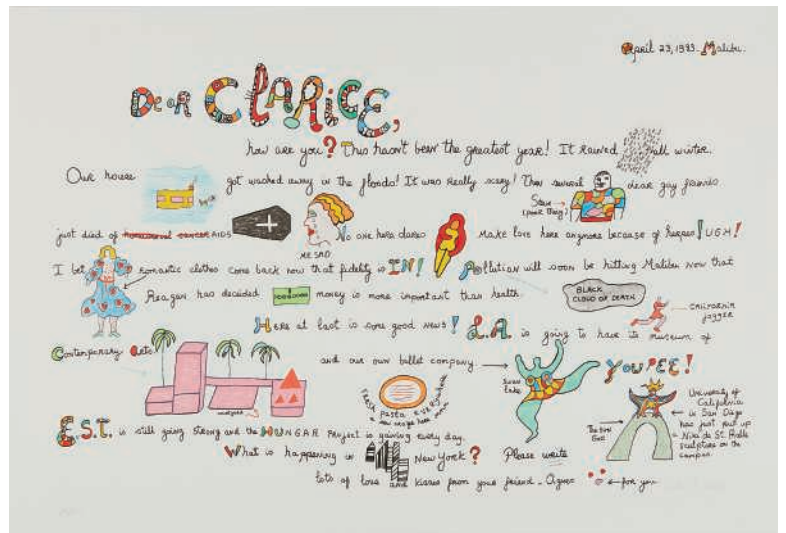 April 23, 1983. Malibu.
Dear CLARICE,
how are you? This hasn't been the greatest year! It rained all winter.
Our house got washed away in the floods! It was really scary! Then several dear gay friends
just died of homosexual cancer AIDS No one here dares make love here anymore because of herpes! UGH!
ME SAD
I bet romantic clothes come back now that fidelity is IN! Pollution will soon be hitting Malibu now that
Reagan has decided money is more important than health.
BLACK
CLOUD OF DEATH
CALIFORNIA
JOGGER
Here at last is some good news! L.A. is going to have its museum of
Contemporary Arts.
and our own ballet company
Swan
lake
YOUPEE!
FRESH PASTA EVERYWHERE
E.S.T. is still going strong and the HUNGAR Project is gaining every day.
The Sun
God
University of
California
in San Diego
has just put up
Niki de St. Phalle
sculpture on the
campus.
What is happening in New York? Please write
lots of love and kisses from your friend - Agnes
for you